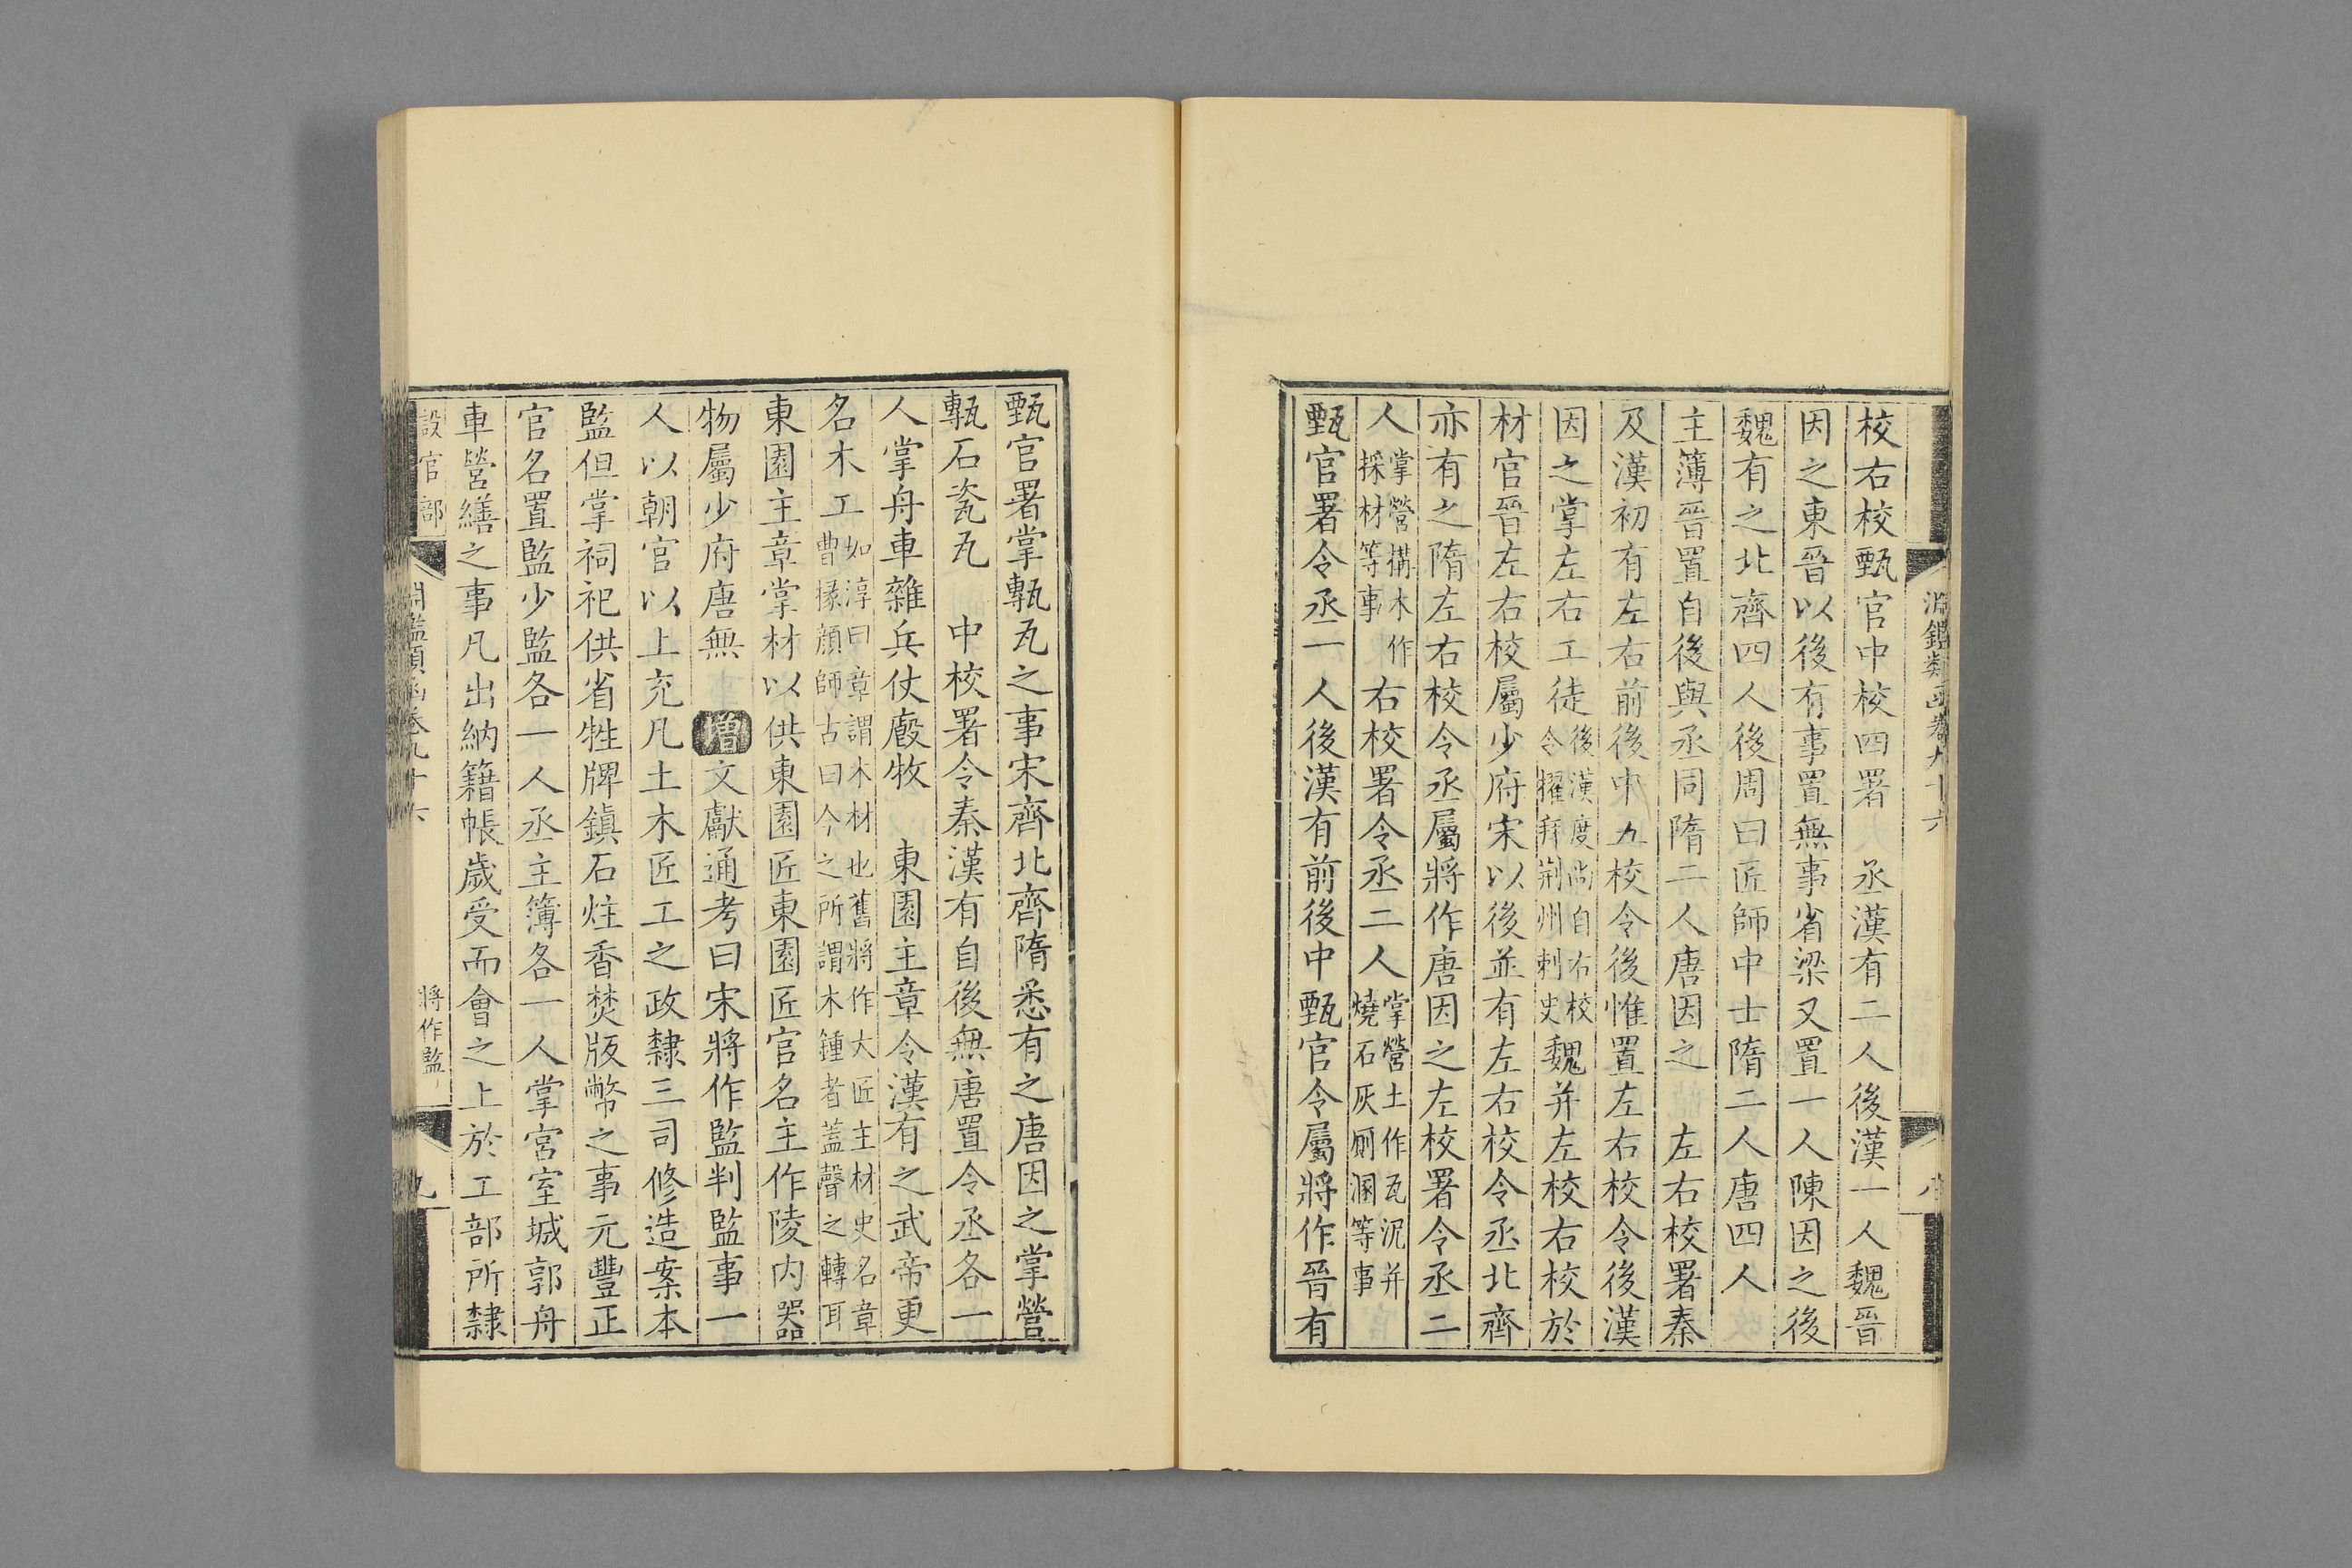 淵鑑類函卷九十六
八
校右校甄官中校四署　丞漢有二人後漢一人魏晉
因之東晉以後有事置無事省梁又置一人陳因之後
魏有之北齊四人後周曰匠師中士隋二人唐四人
主簿晉置自後與丞同隋二人唐因之　左右校署秦
及漢初有左右前後中五校令後惟置左右校令後漢
因之掌左右工徒後漢度尚自右校令擢拜荊州刺史魏并左校右校於
材官晉左右校屬少府宋以後並有左右校令丞北齊
亦有之隋左右校令丞屬將作唐因之左校署令丞二
人掌營構木作採材等事右校署令丞二人掌營土作瓦泥并燒石灰厠溷等事
甄官署令丞一人後漢有前後中甄官令屬將作晉有
甄官署掌甎瓦之事宋齊北齊隋悉有之唐因之掌營
甎石瓷瓦　中校署令秦漢有自後無唐置令丞各一
人掌舟車雜兵仗廄牧　東園主章令漢有之武帝更
名木工如淳曰章謂木材也舊將作大匠主材史名章曹掾顏師古曰今之所謂木鍾者蓋聲之轉耳
東園主章掌材以供東園匠東園匠官名主作陵内器
物屬少府唐無　增文獻通考曰宋將作監判監事一
人以朝官以上充凡土木匠工之政隸三司修造案本
監但掌祠祀供省牲牌鎮石炷香焚版幣之事元豐正
官名置監少監各一人丞主簿各一人掌宮室城郭舟
車營繕之事凡出納籍帳歲受而會之上於工部所隸
設官部
淵鑑類函卷九十六
將作監
九